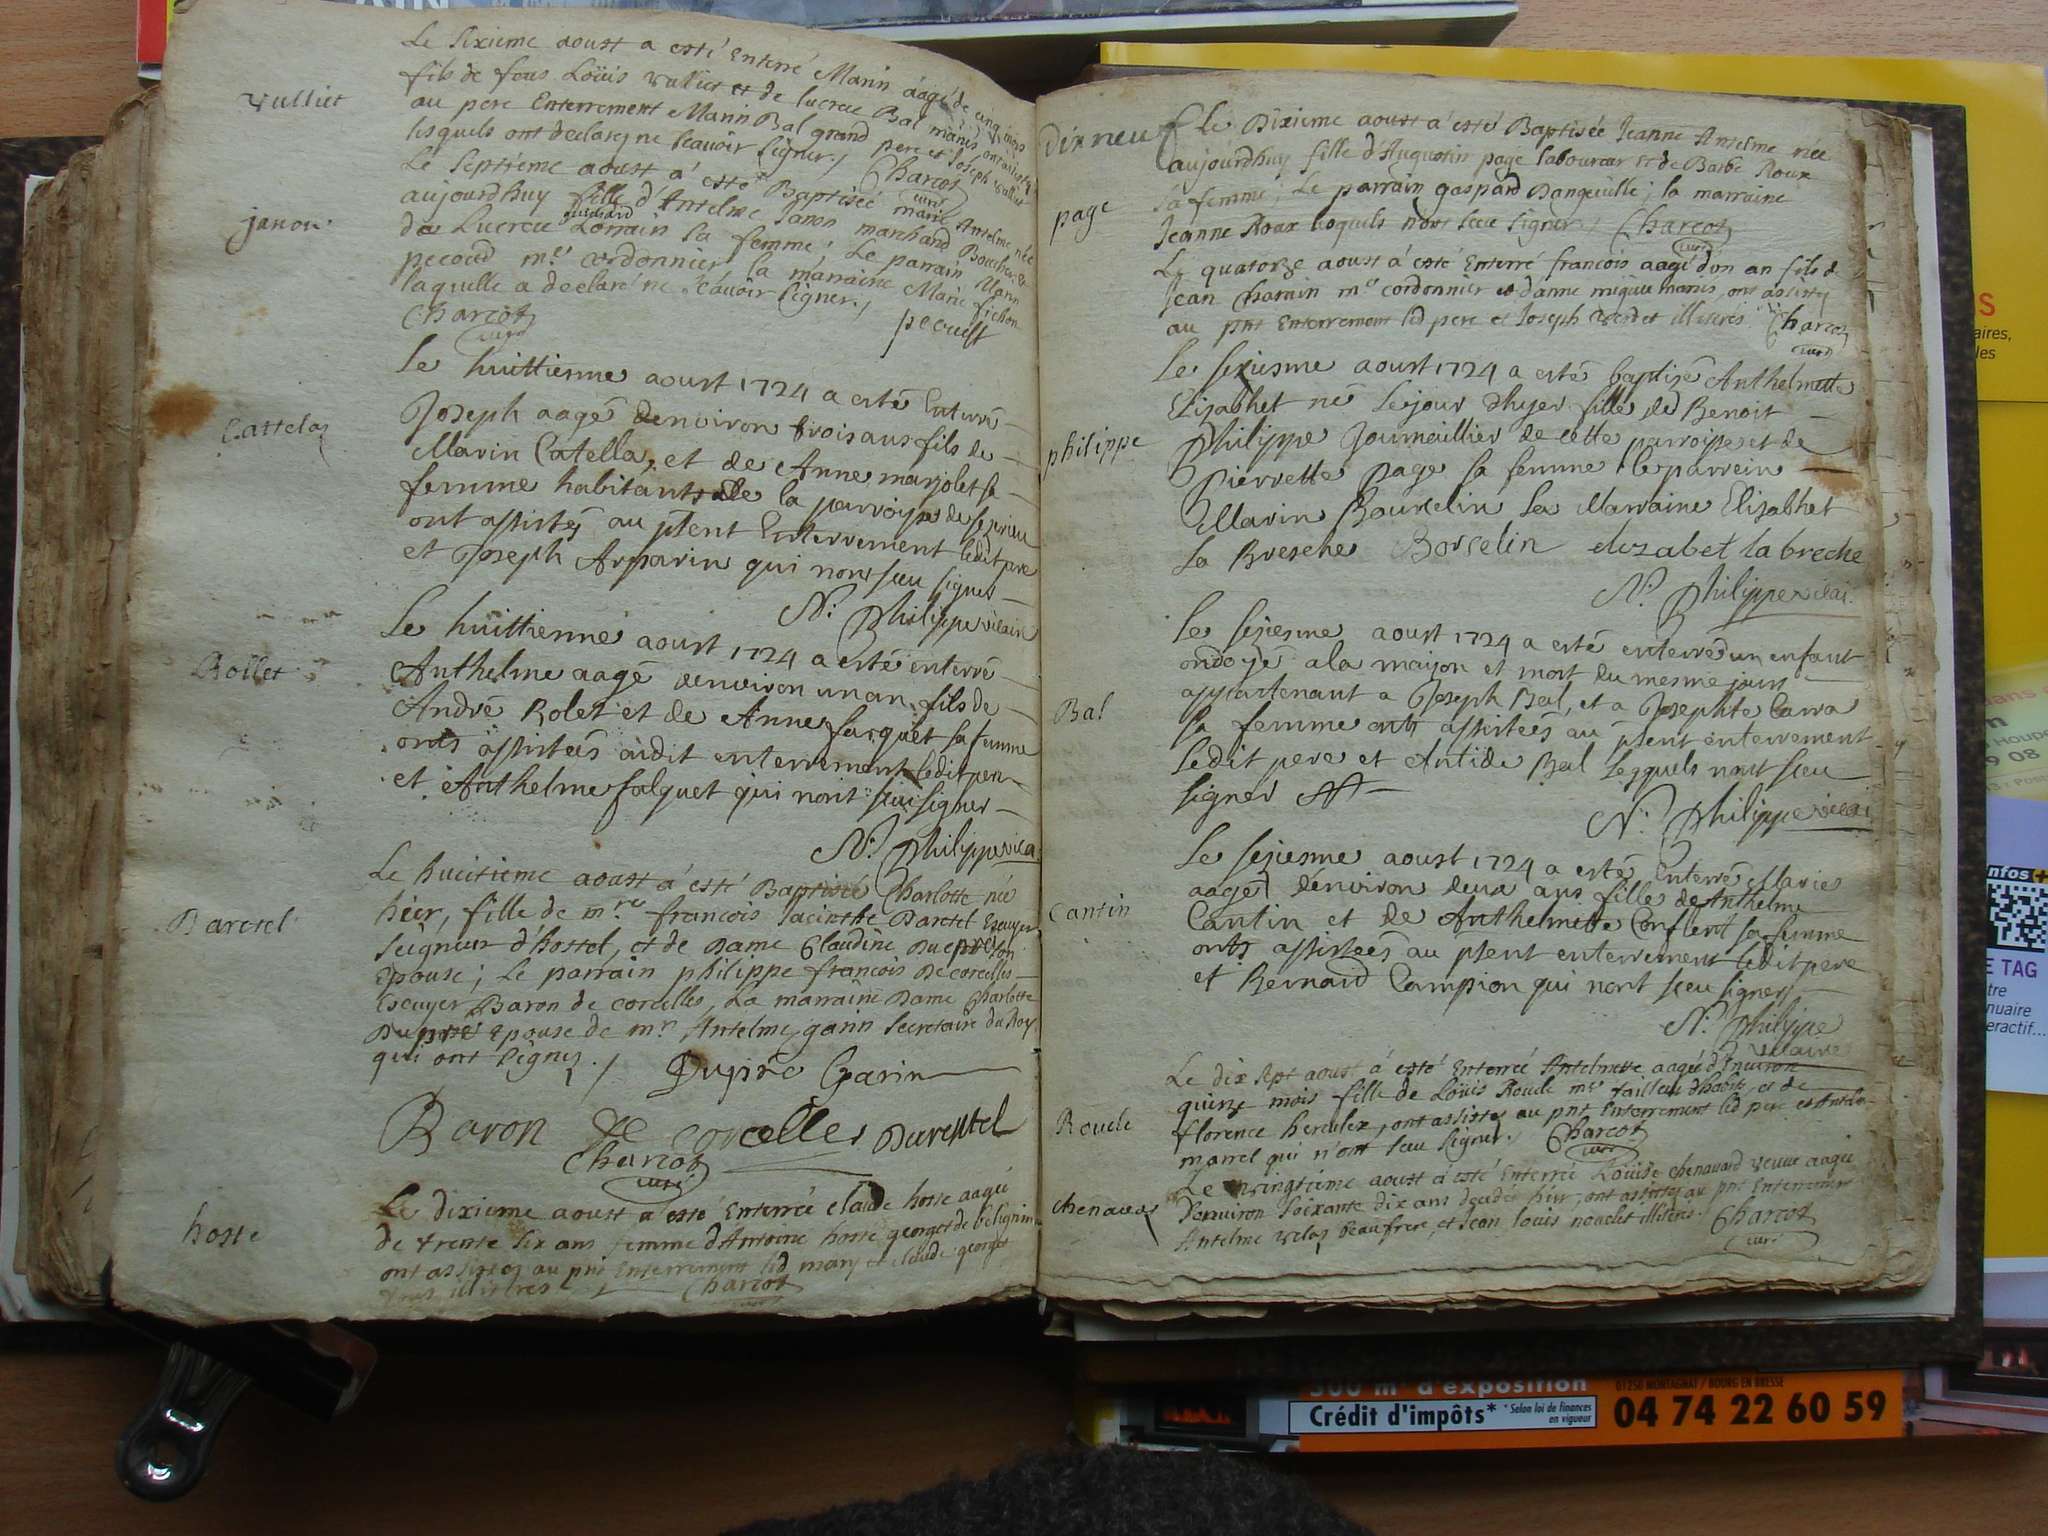 Vulliet
Le sixieme aoust a esté Enterré Marin aâgé de cinq mois
fils de feus Loüis vulliet et de lucrece Bal mariés ont assisté
au pere Enterrement Marin Bal grand pere et Joseph vulliet
lesquels ont declaré ne scavoir signer./ Charcot
curé
janon
Le septieme aoust a esté Baptisée marie Antelme née
aujourdhuy fille d'Antelme Janon marchand Boucher et
de Lucrece Lorrain sa femme; Le parrain Marin
pecoud m.e cordonnier la marraine Marie fichon
laquelle a declaré ne scavoir signer./
Charcot
curé
Cattelaz
Le huittienne aoust 1724 a esté Enterré
Joseph aagé denviron trois ans fils de
Marin Catella, et de Anne marjolet sa
femme habitants de la parroipe de
ont assistés au pñent Enterrement ledit pere
et Joseph Arparin qui nont sceu signer
N: Philippe vicaire
Rollet
Le huittienne aoust 1724 a esté enterré
Anthelme aagé denviron un an fils de
André Rolet et de Anne falquet sa femme
onts assistés audit enterrement ledit pere
et Anthelme falquet qui nont sceu signer
N: Philippe vica
Darestel
Le huitieme aoust a esté Baptisée Charlotte née
hier, fille de m.re francois Jacinthe Darestel Escuyer
seigneur d'hostel, et de Dame Claudine Dupré son
Epouse; Le parrain philippe francois De corcelles
Escuyer Baron de corcelles, La marraine Dame Charlotte
Dupré Epouse de m.r Antelme garin Secretaire du Roy
qui ont signez./ Dupré Garin
Baron De corcelles Darestel
Charcot
curé
hoste
Le dixieme aoust a esté Enterrée claude hoste aagée
de trente six ans femme d'Antoine hoste georget de belignin
ont assistez au pnt Enterrement led mary et claude georget
tous illitres Charcot
Dixneuf
page
Le Dixieme aoust a esté Baptisée Jeanne Antelme née
aujourdhuy fille d'Augustin page laboureur et de Barbe Roux
sa femme; Le parrain gaspard Danguille; la marraine
Jeanne Roux lequels n'ont sceu signer./ Charcot
curé
Le quatorze aoust a esté Enterré francois aagé d'un an fils de
Jean Charrin m.e cordonnier et d'anne miguet mariés, ont assistez
au pnt Enterrement led pere et Joseph Verdet illiterés Charcot
curé
philippe
Le sejiesme aoust 1724 a esté baptisé Anthelmette
Elizabhet né le jour dhyer fille de Benoit
Philippe Journaillier de cette parroipe et de
Pierrette Page sa femme le parrein
Marin Bourcelin La Marraine Elizabhet
La Bresche Borselin elizabet la breche
N: Philippe vicai.
Bal
Le sejiesme aoust 1724 a esté enterré un enfant
ondoyé a la maison et mort du mesme jour
appartenant a Joseph Bal, et a Josephte Carra
sa femme onts assistés au pñent enterrement
ledit pere et Antide Bal lesquels nont sceu
signer
N: Philippe vicai
Cantin
Le sejiesme aoust 1724 a esté Enterré Marie
aagé denviron deux ans fille de Anthelme
Cantin et de Anthelmette Conflent sa femme
onts assistés au pñent enterrement ledit pere
et Bernard Campion qui nont sceu signer
N: Philippe
vicaire
Roude
Le dix sept aoust a esté Enterrée Antelmette aagée d'Enuiron
quinze mois fille de Loüis Roude m.e tailleur d'habits, et de
florence herculex, ont assistez au pnt Enterrement led pere et
marrel qui n'ont sceu signer. Charcot
curé
chenavaz
Le vingtieme aoust a esté Enterrée Loüise chenavard veuve aagée
d'enuiron soixante dix ans decedée hier, ont assistez au pnt Enterrement
Antelme velas beaufrere, et Jean louis nouelet illiterés. Charcot
curé
S
aires,
les
9 08
nfos+
E TAG
tre
nuaire
eractif...
500 m² d'exposition
01250 MONTAGNAT / BOURG EN BRESSE
Crédit d'impôts* *Selon loi de finances
en vigueur
04 74 22 60 59